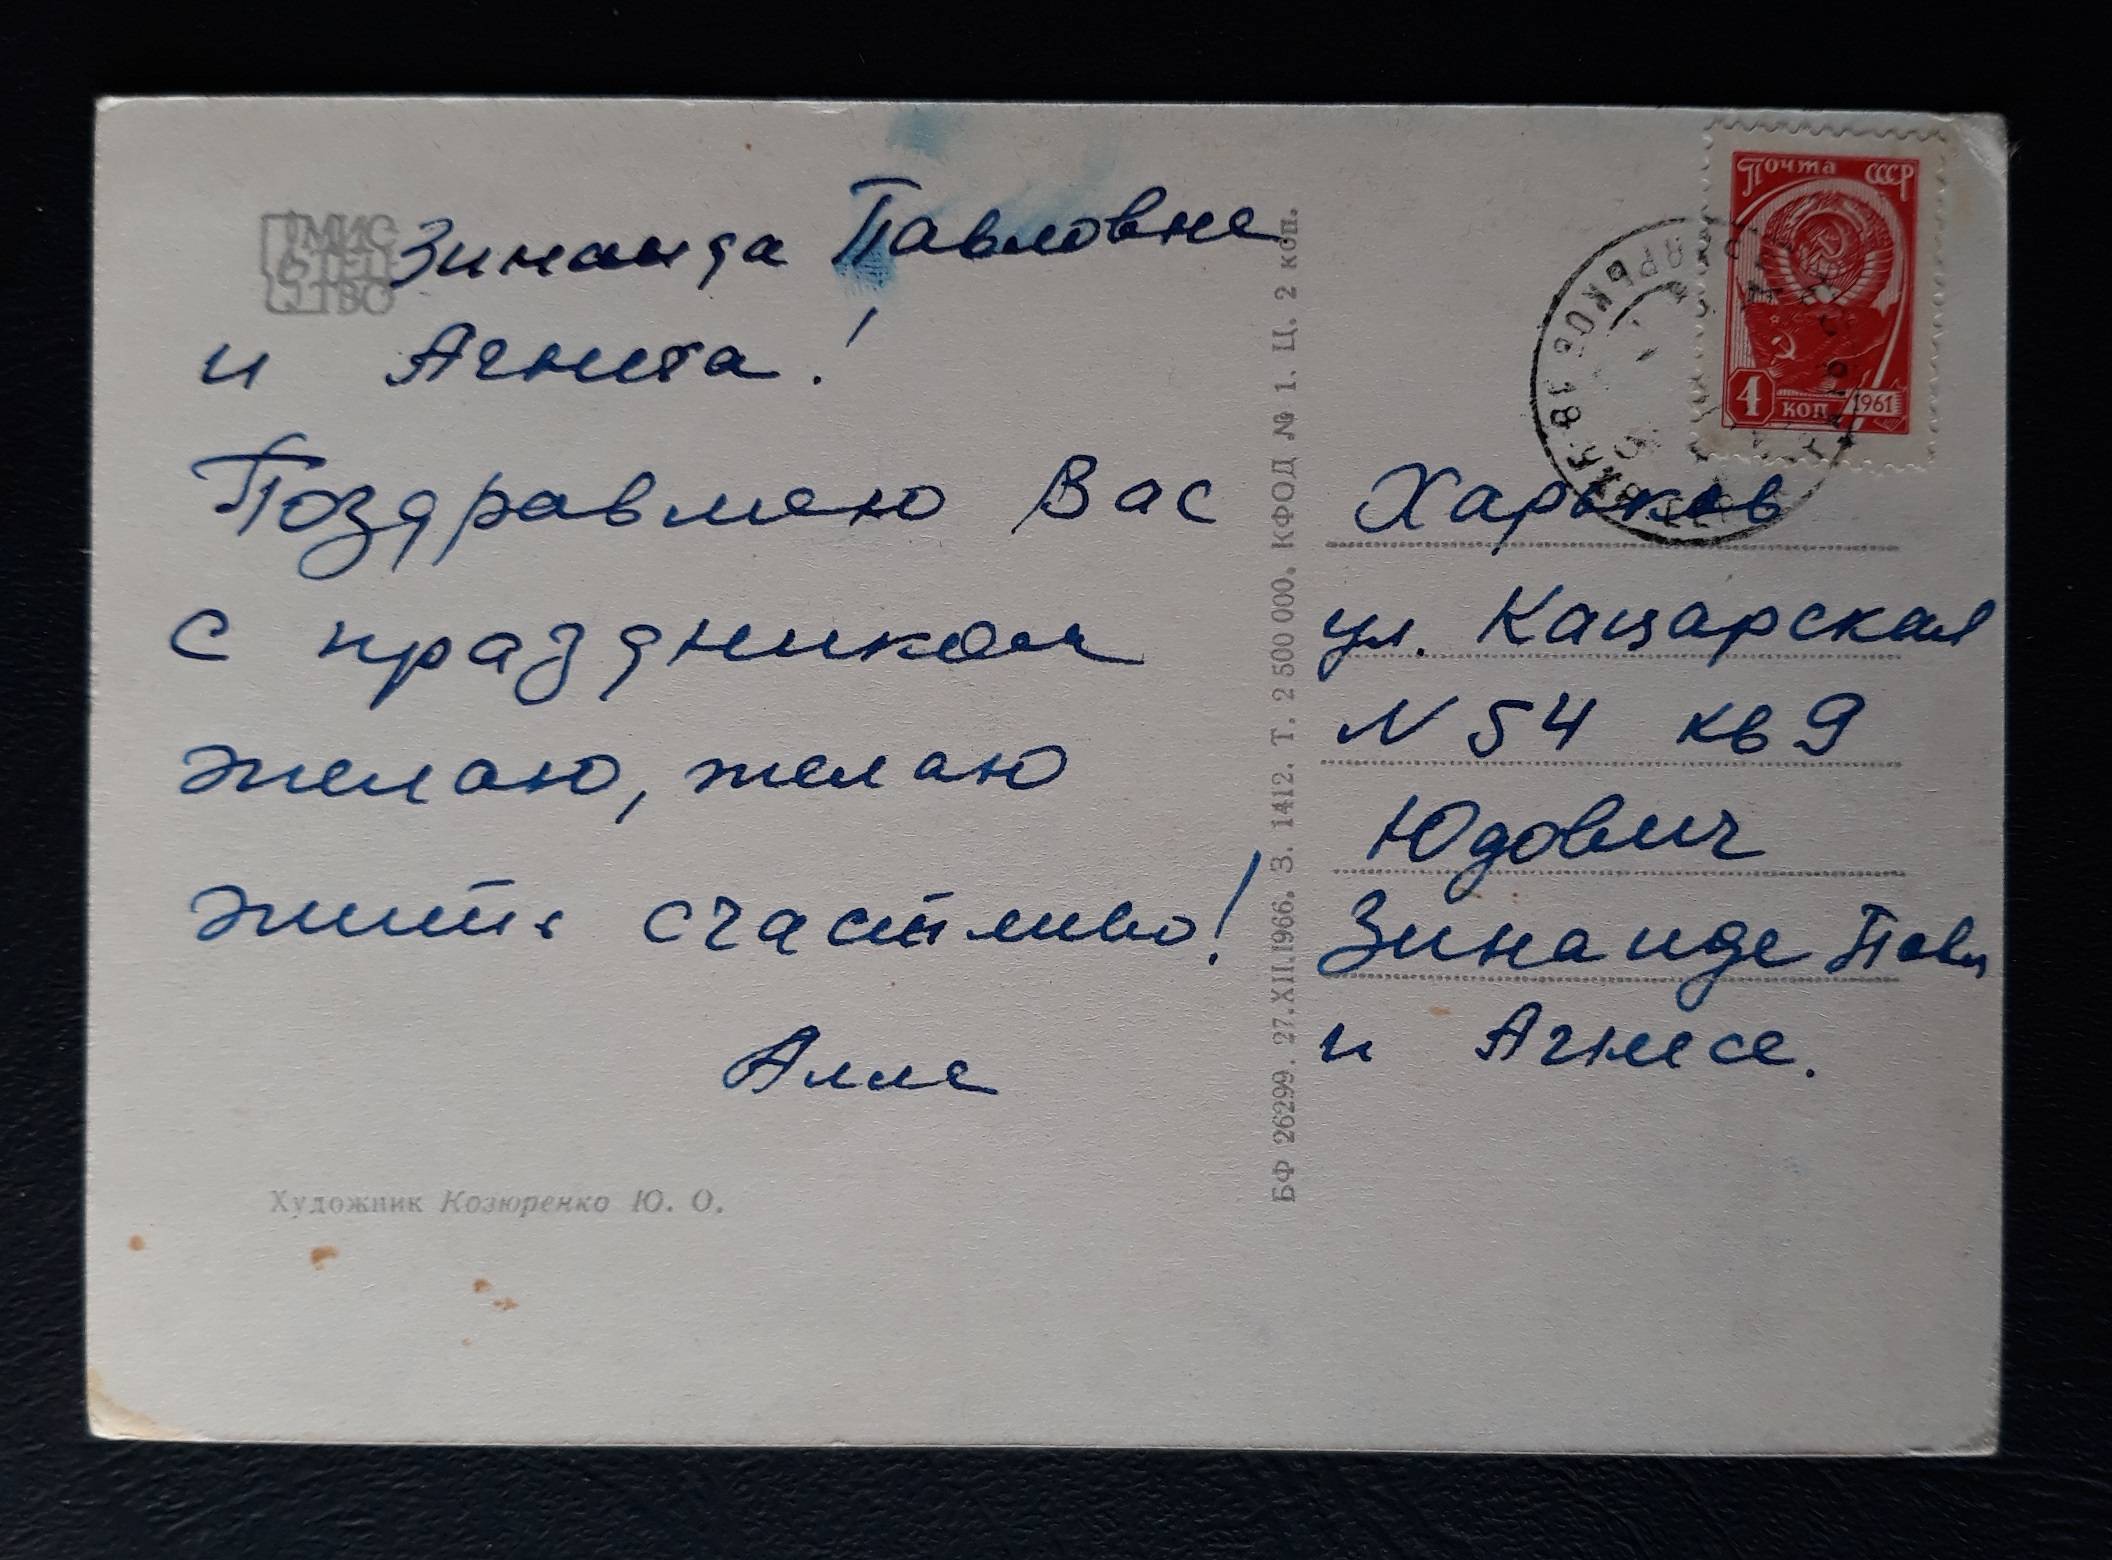 МИС
ТЕЦ
ТВО
Зинаида Павловне
и Агнета!
Поздравляю Вас
с праздником
желаю, желаю
жить счастливо!
Алле
Художник Козюренко Ю. О.
БФ 26299. 27.XII.1966. З. 1412. Т. 2 500 000. КФОД № 1. Ц. 2 коп.
Почта СССР
4 коп 1961
ХАРЬКОВ 18
Харьков
ул. Кацарская
N 54 кв 9
Юдович
Зинаиде Павл
и Агнесе.